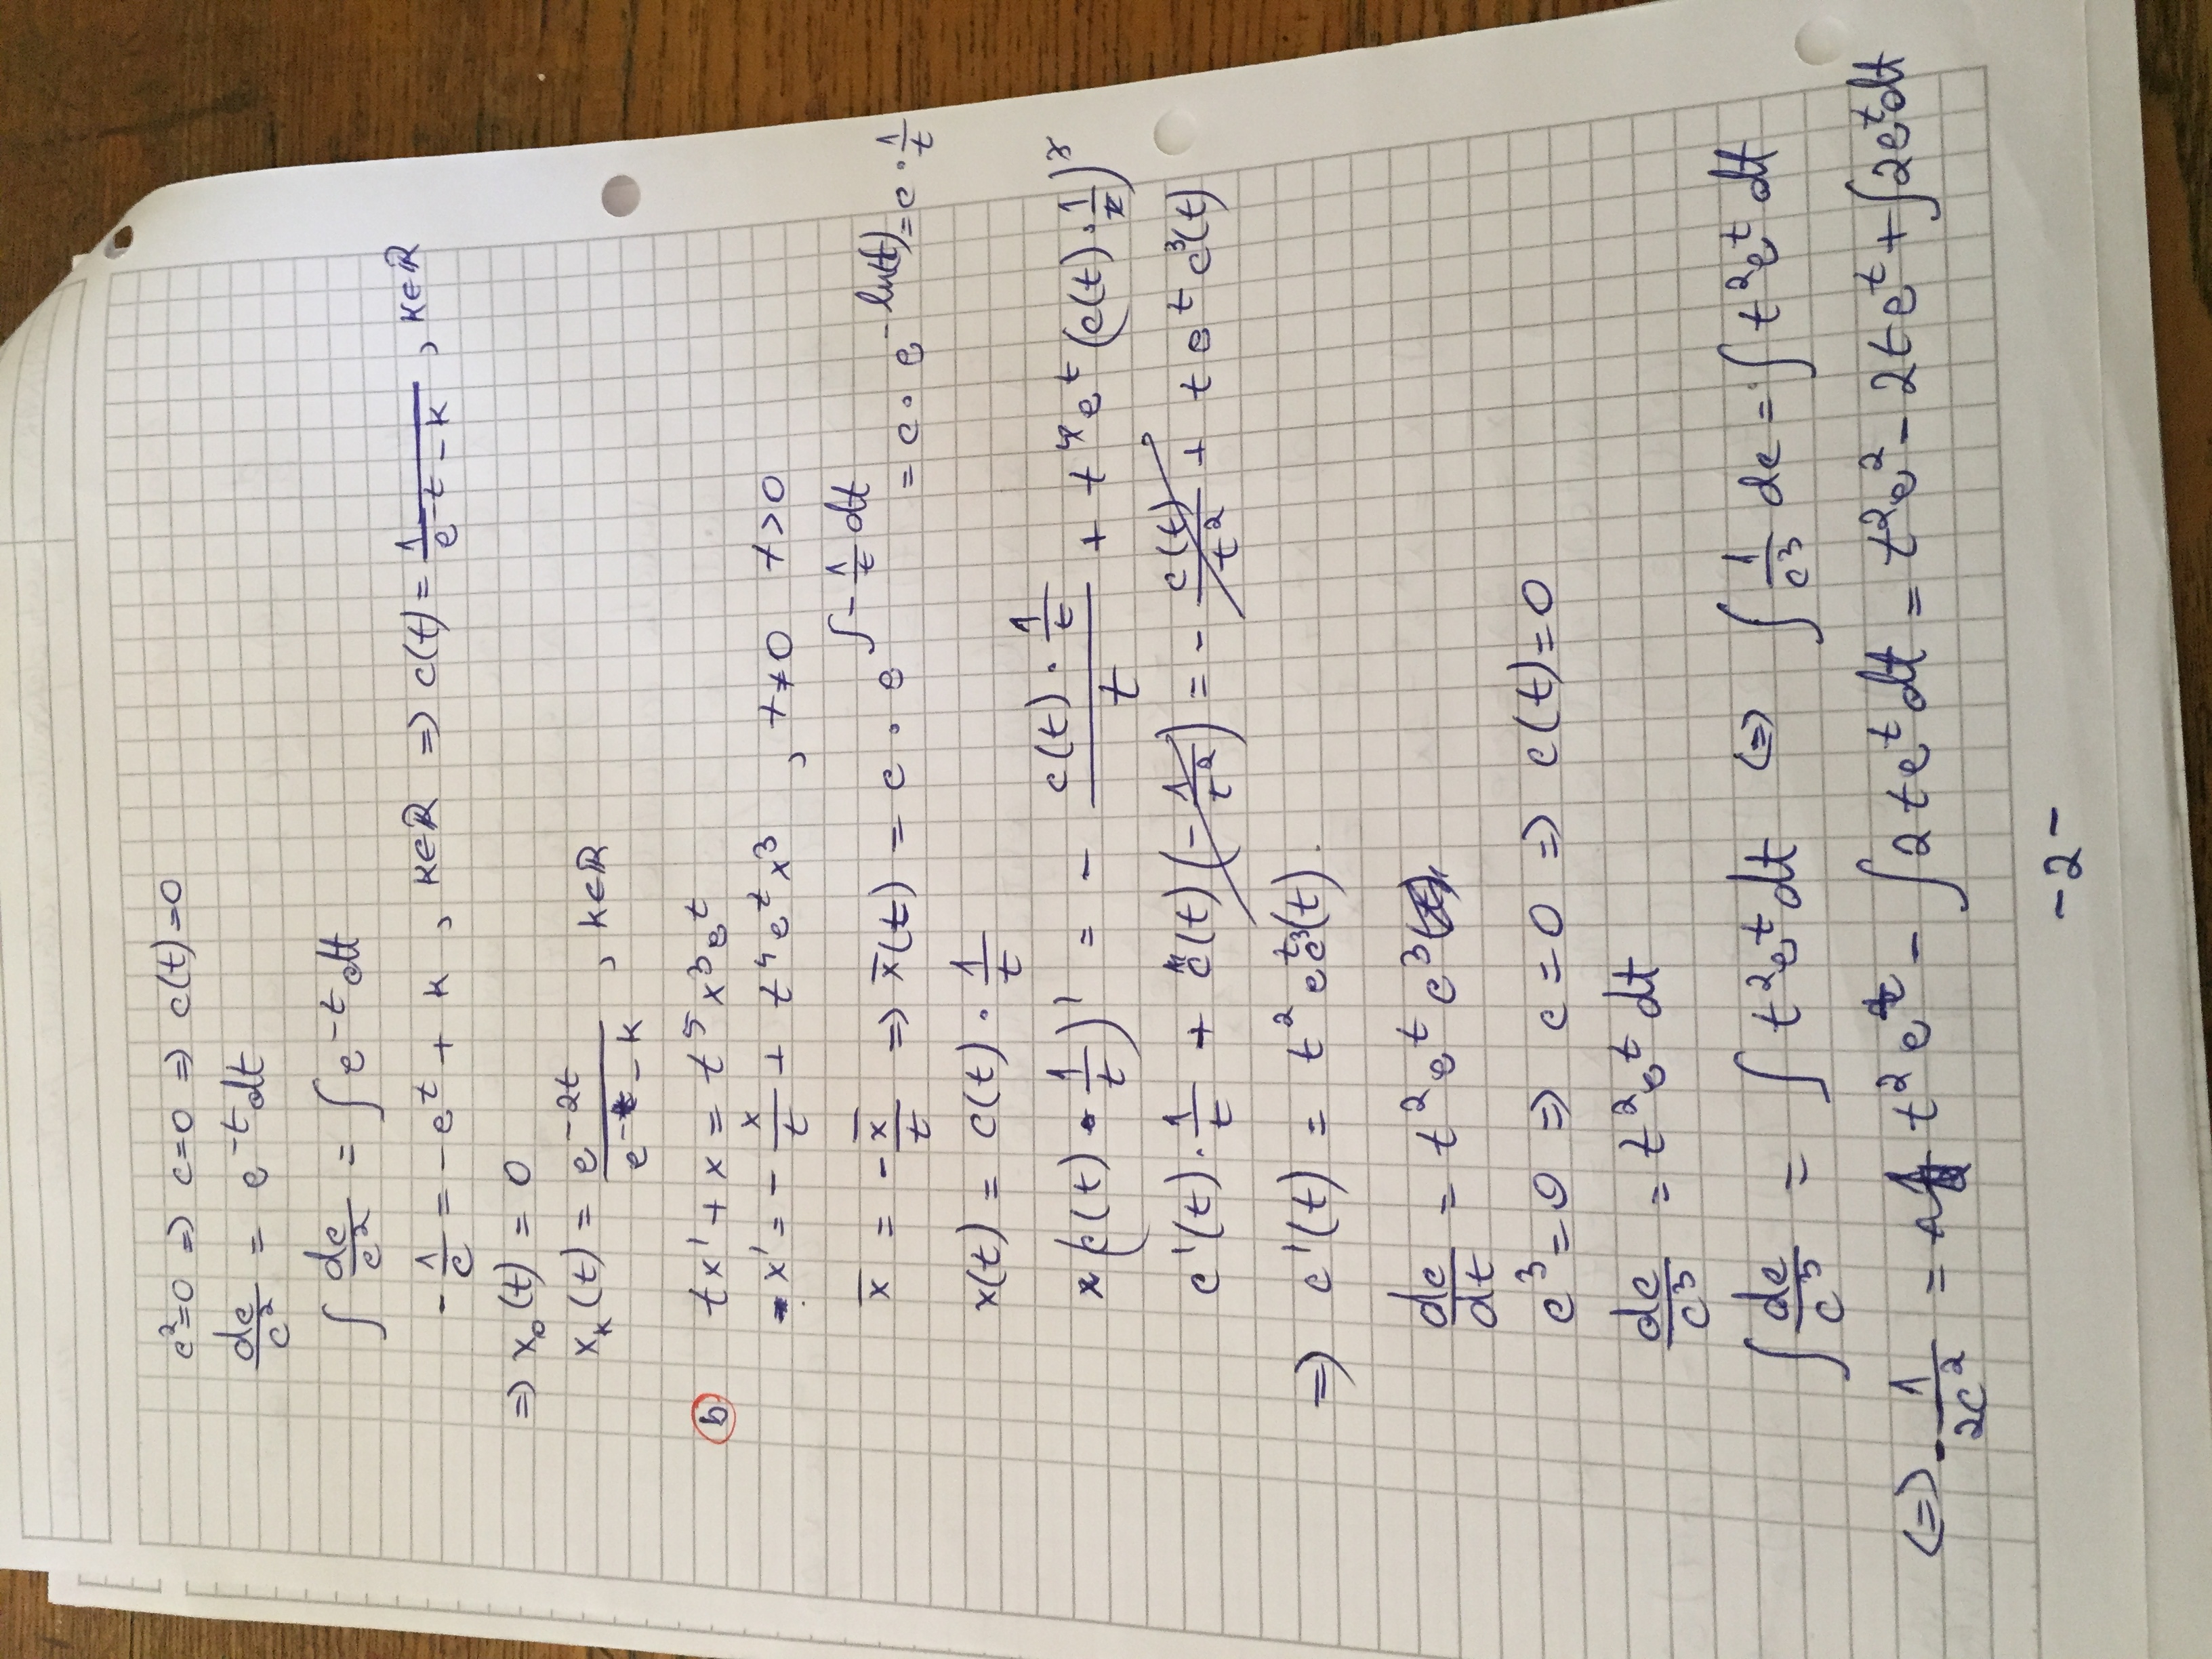 c²=0 ⇒ c=0 ⇒ c(t)=0
dc/c² = e^{-t} dt
∫ dc/c² = ∫ e^{-t} dt
-1/c = -e^t + k , k∈ℝ ⇒ c(t) = 1/(e^{-t} - k) , k∈ℝ
⇒ x₀(t) = 0
x_k(t) = e^{-2t}/(e^{-t} - k) , k∈ℝ
b) tx' + x = t⁵x³e^t
x' = -x/t + t⁴e^t x³ , t≠0 t>0
x̄ = -x̄/t ⇒ x̄(t) = c · e^{∫-1/t dt} = c · e^{-ln(t)} = c · 1/t
x(t) = c(t) · 1/t
(c(t) · 1/t)' = - (c(t) · 1/t)/t + t⁴e^t (c(t) · 1/t)³
c'(t) · 1/t + c(t)(-1/t²) = - c(t)/t² + t e^t c³(t)
⇒ c'(t) = t² e^t c³(t)
dc/dt = t² e^t c³
c³=0 ⇒ c=0 ⇒ c(t)=0
dc/c³ = t² e^t dt
∫ dc/c³ = ∫ t²e^t dt ⇔ ∫ 1/c³ dc = ∫ t²e^t dt
⇔ -1/(2c²) = t²e^t - ∫2te^t dt = t²e² - 2te^t + ∫2e^t dt
-2-